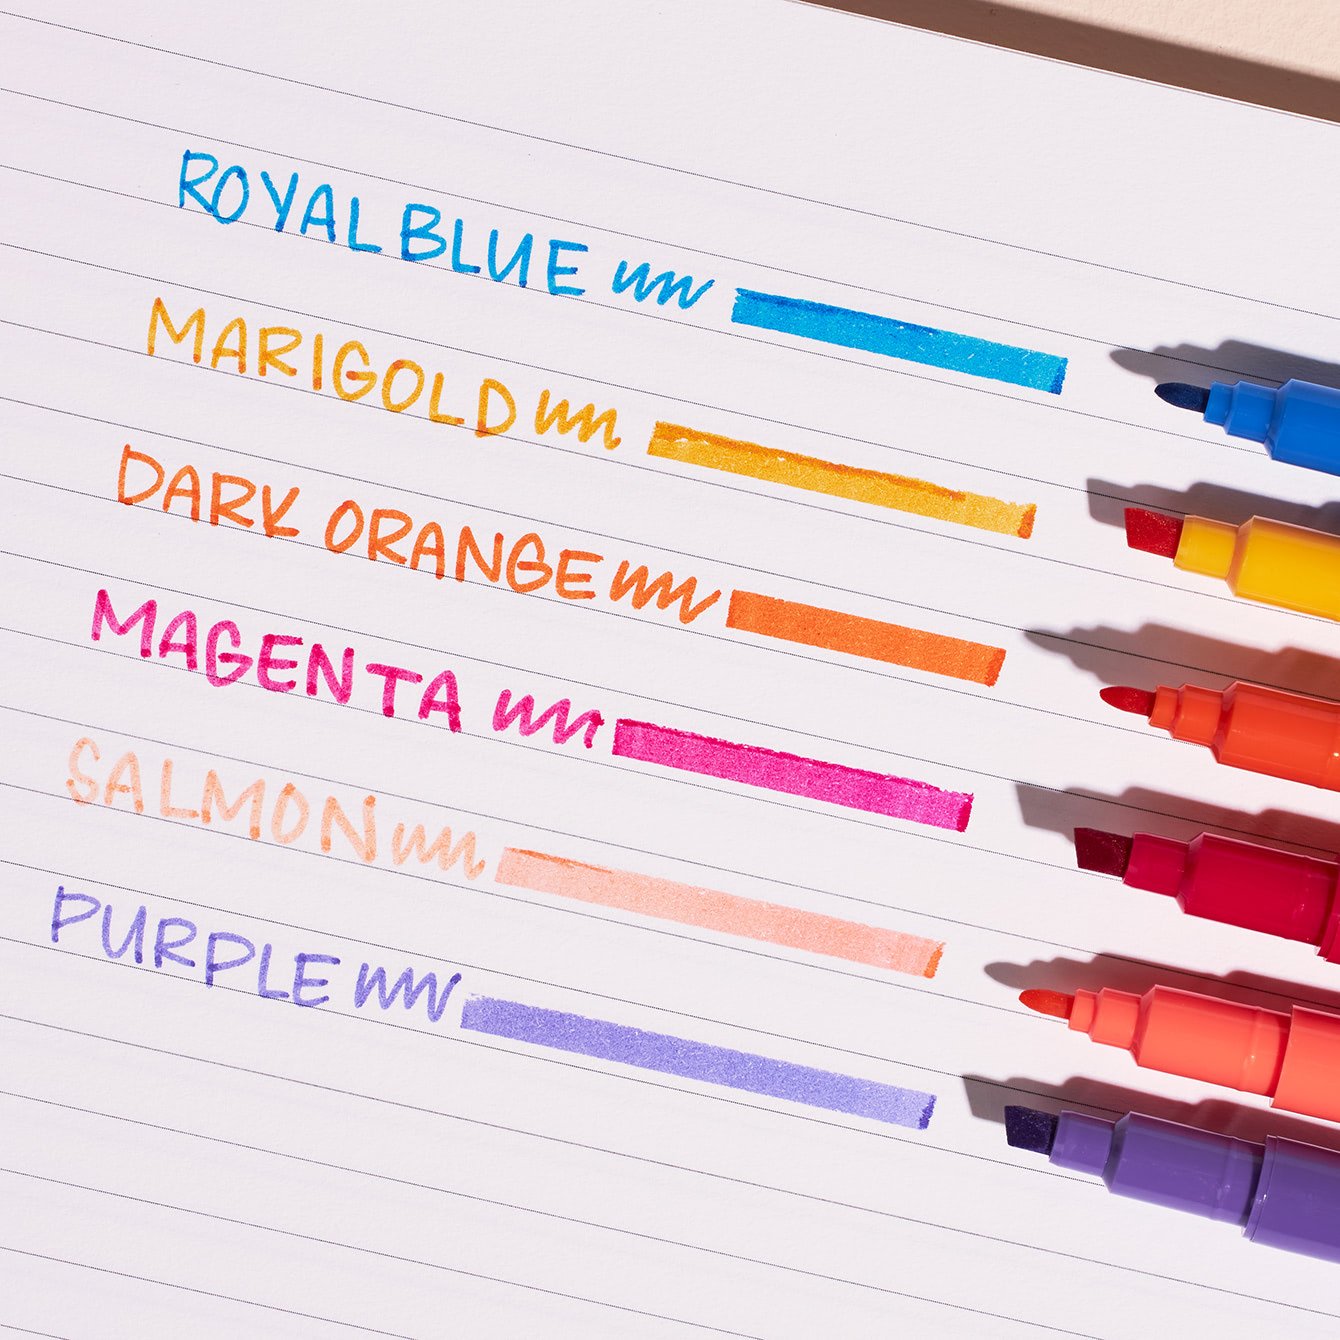 ROYAL BLUE
MARIGOLD
DARK ORANGE
MAGENTA
SALMON
PURPLE